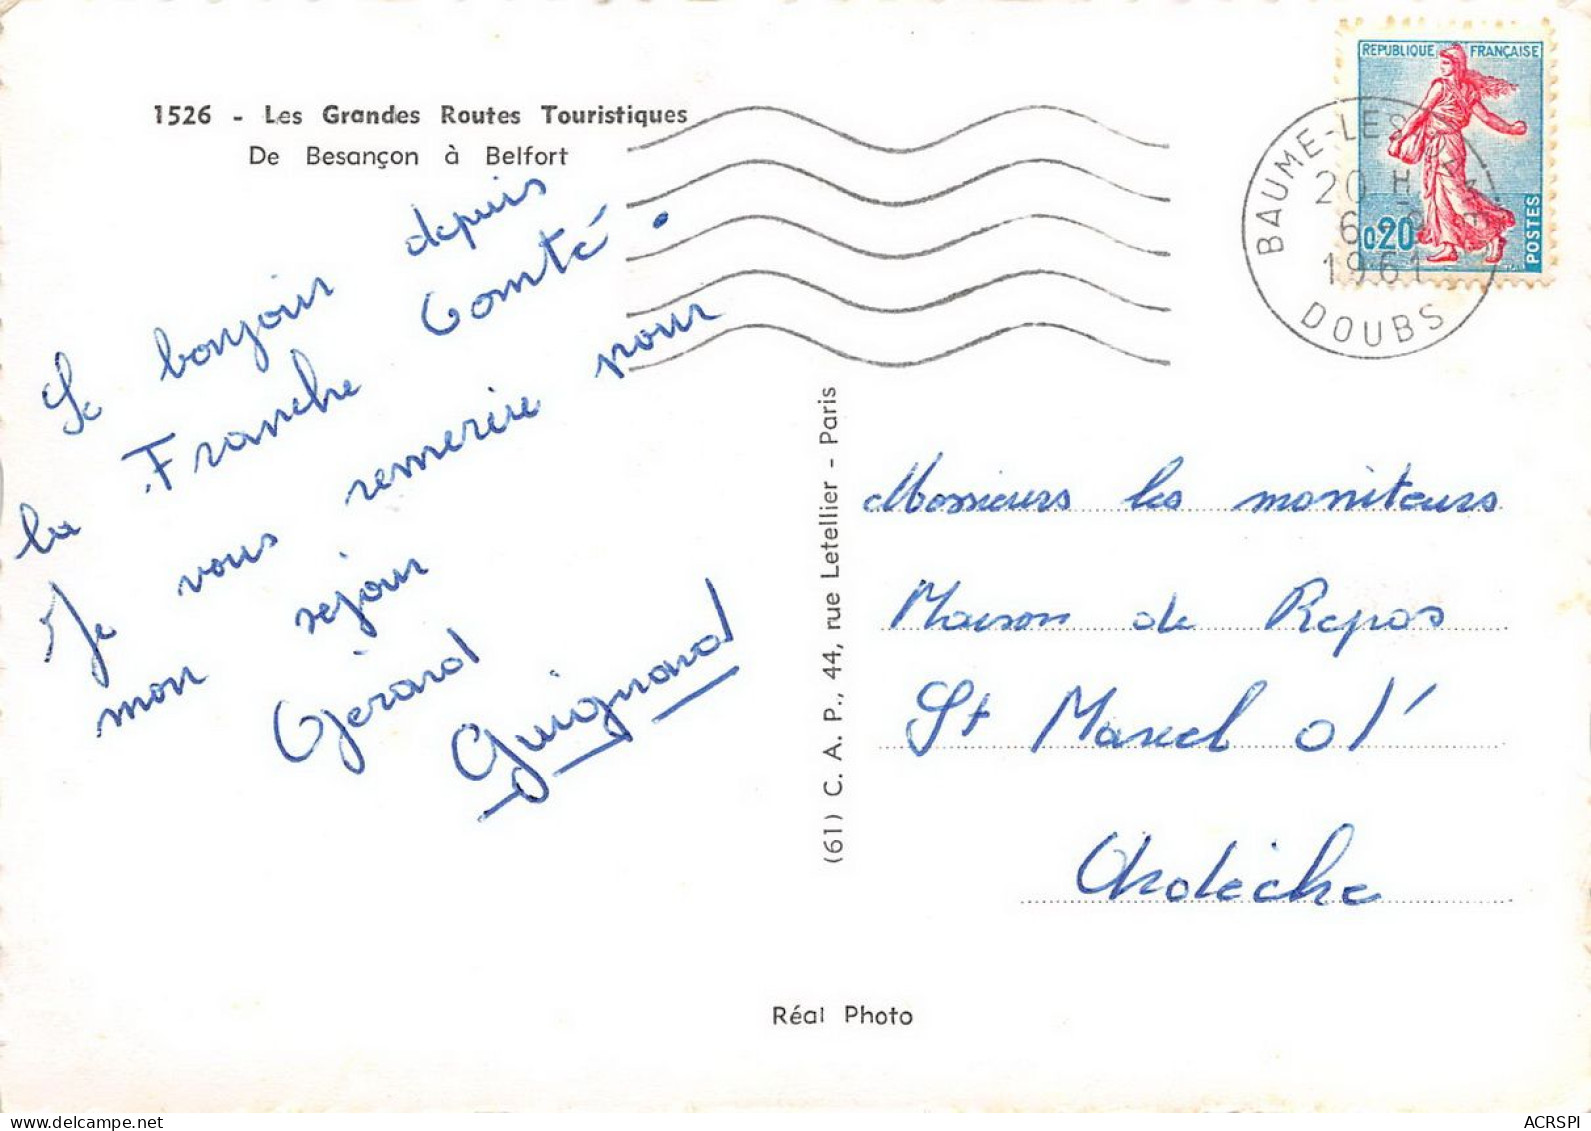 1526 - Les Grandes Routes Touristiques
De Besançon à Belfort
Le bonjour depuis
la Franche Comté.
Je vous remercie pour
mon sejour
Gérard
Guignard
REPUBLIQUE FRANÇAISE
0,20
POSTES
BAUME-LES-DAMES
20 H
6 - 9
1961
DOUBS
(61) C. A. P., 44, rue Letellier - Paris
Messieurs les moniteurs
Maison de Repos
St Marcel d'
Ardèche
Réal Photo
www.delcampe.net
ACRSPI